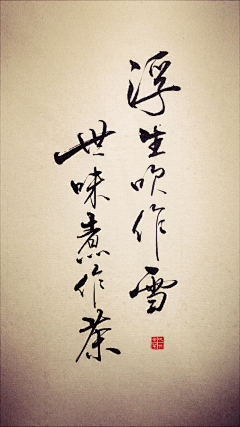 浮生吹作雪
世味煮作茶